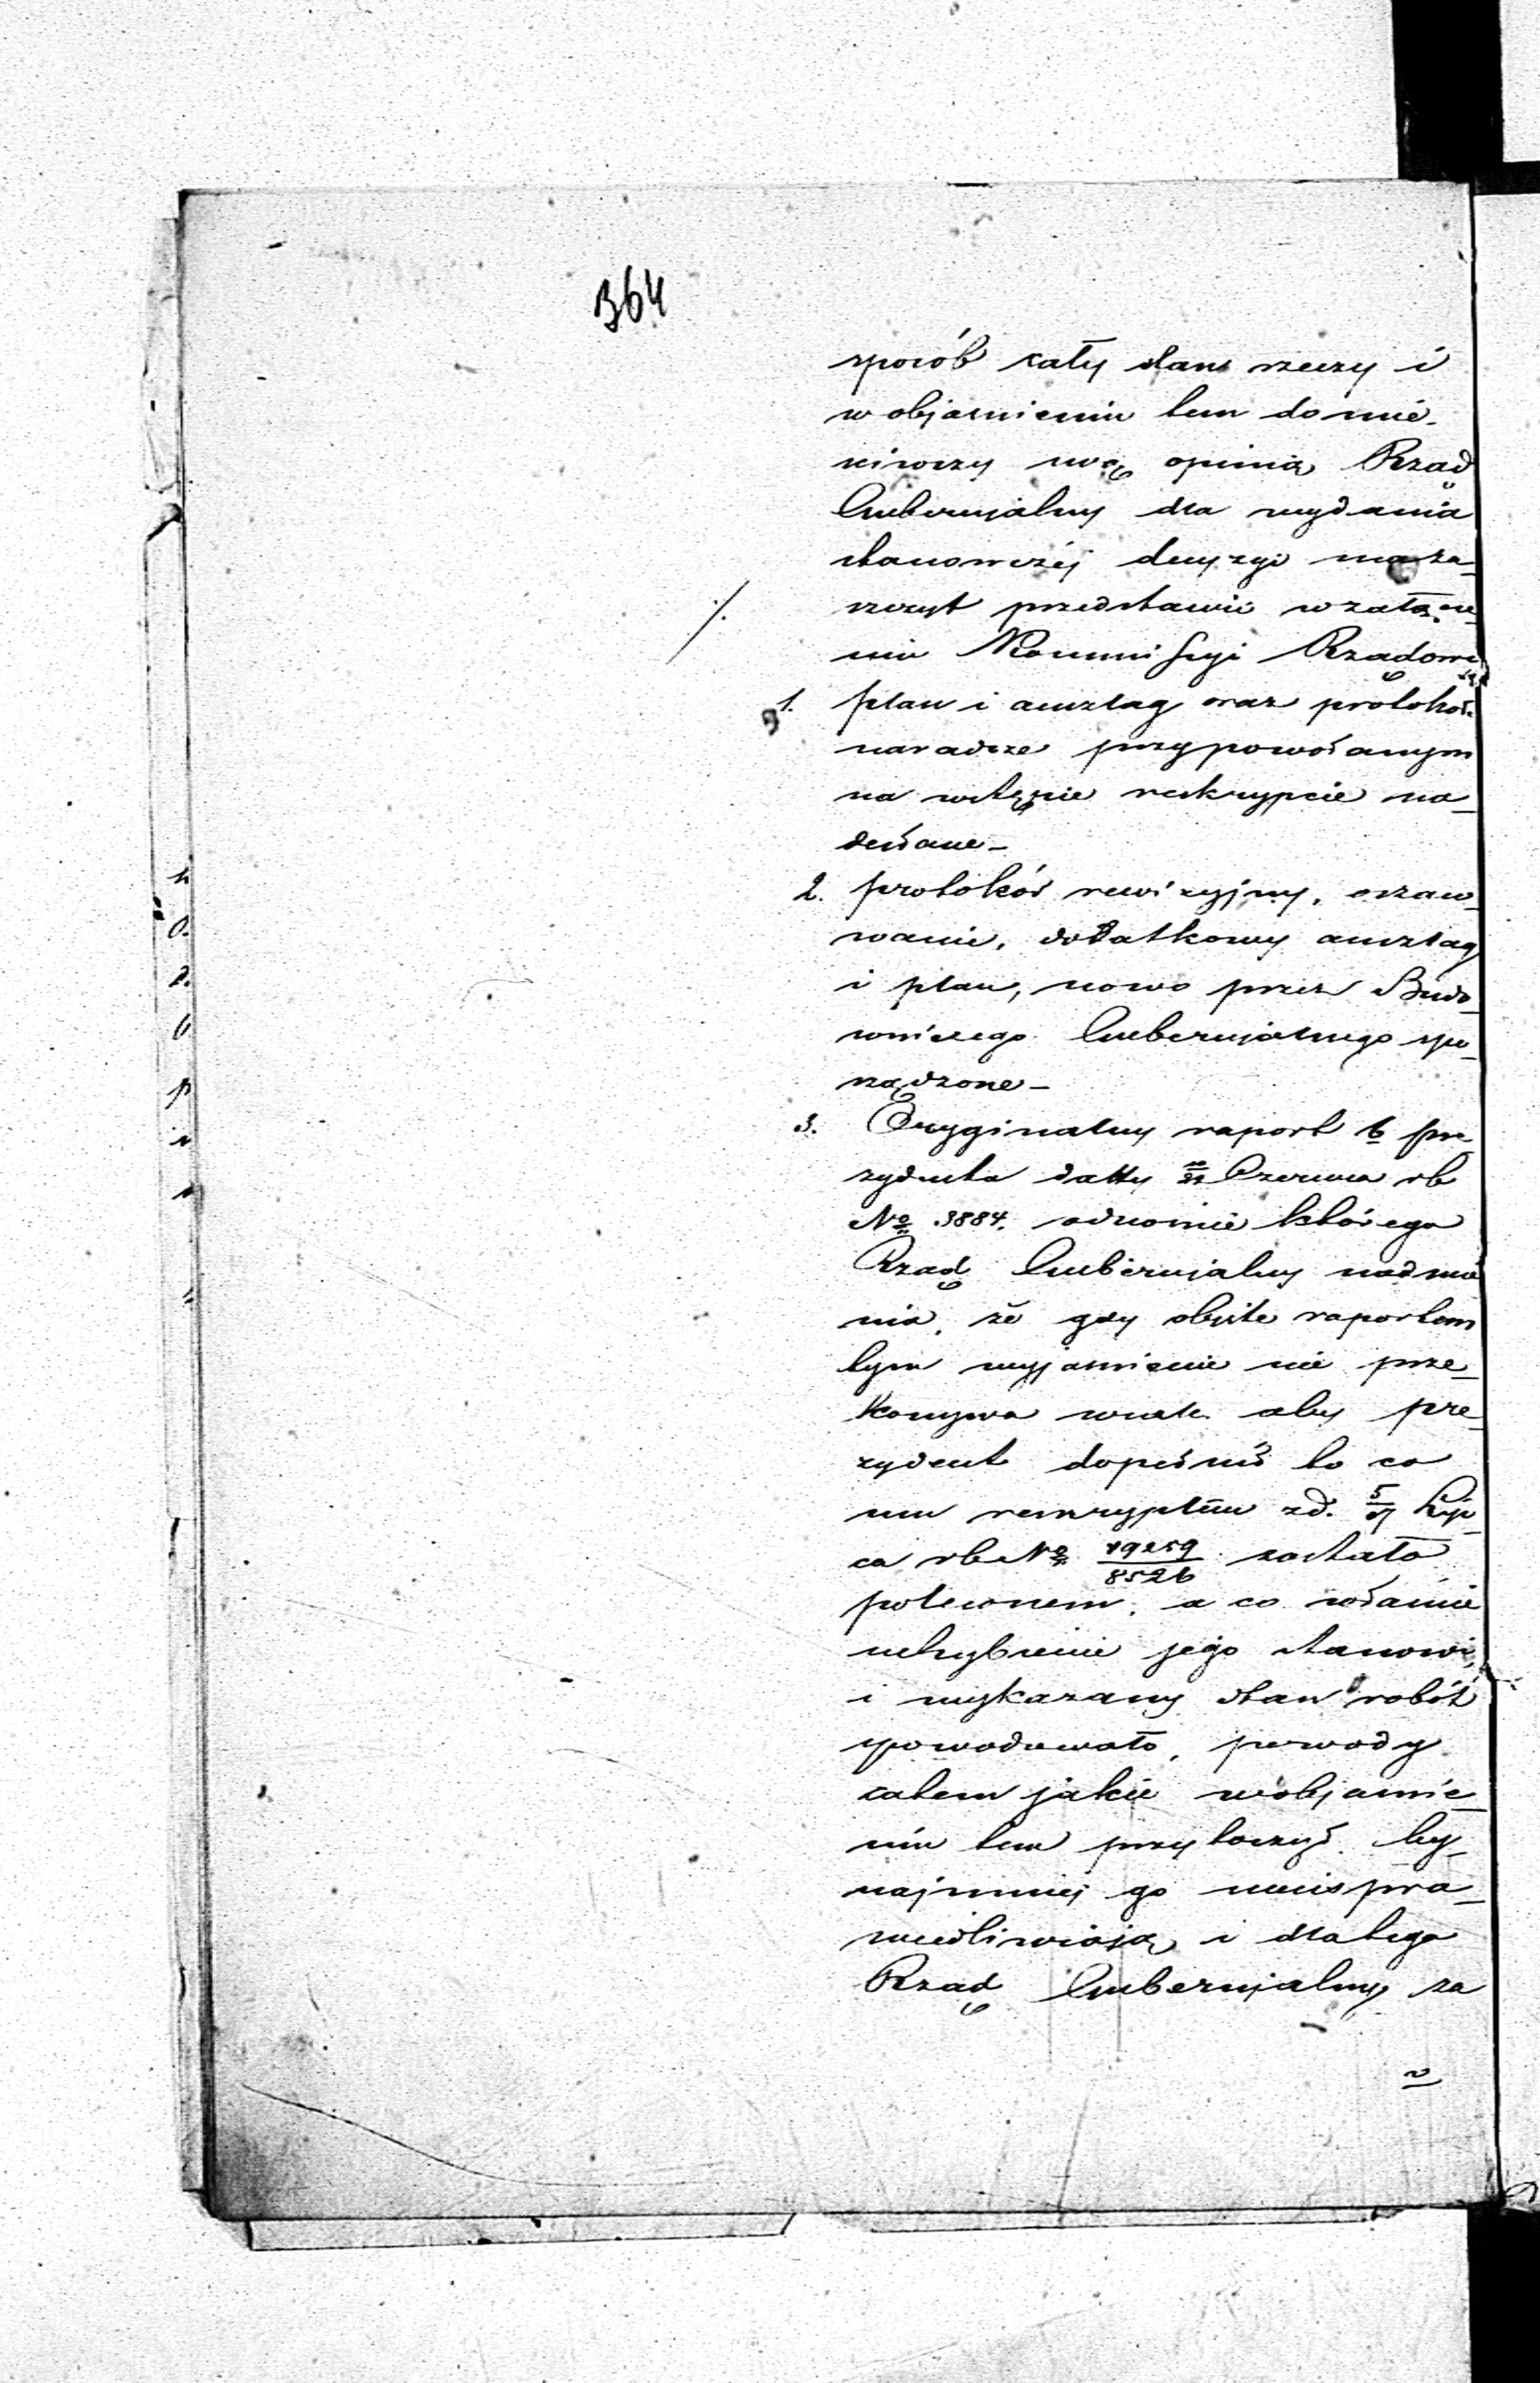 364
sposób cały stan rzeczy i
w objasnieniu tem domie-
niwszy swą opinią Rząd
Gubernjalny dla wydania
stanowczéj decyzyi ma za-
szczyt przedstawić w załącze-
niu Kommissyi Rządowéj
1. plan i anszlag oraz protokół
naradcze przy powołanym
na wstępie reskrypcie na-
desłane –
2. protokół rewizyjny, oszaco-
wanie, dodatkowy anszlag
i plan, nowo przez Budo-
wniczego Gubernjalnego spo-
rządzone –
3. Oryginalny raport b Pre-
zydenta datty Czerwca rb
No 3884. odnośnie którego
Rząd Gubernjalny nadmie
nia, że gdy objęte raportem
tym wyjasnienie nie prze-
konywa wcale aby pre-
zydent dopełnił to co
mu reskryptem zd. 5/17 Lip-
ca rb No 19259/8526 zostało
poleconem, a co właśnie
uchybienie jego stanowi,
i wykazany stan robót
spowodowało, powody
zatem jakie w objaśnie-
niu tem przytoczył, by-
najmniej go nieuspra-
wiedliwiają i dlatego
Rząd Gubernjalny za